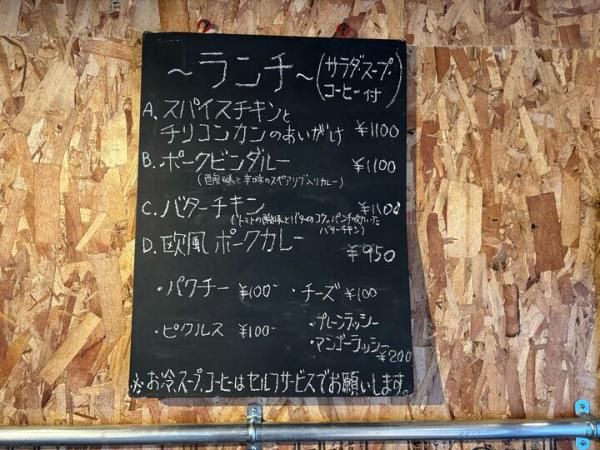 ～ランチ～(サラダ・スープ・コーヒー付)
A. スパイスチキンと
チリコンカンのあいがけ ¥1100
B. ポークビンダルー ¥1100
(酸味と辛味のスペアリブ入りカレー)
C. バターチキン ¥1100
(トマトの酸味とバターのコク、パンチの効いた
バターチキン)
D. 欧風ポークカレー ¥950
・パクチー ¥100 ・チーズ ¥100
・ピクルス ¥100 ・プレーンラッシー
・マンゴーラッシー ¥200
※お冷、スープ、コーヒーはセルフサービスでお願いします。